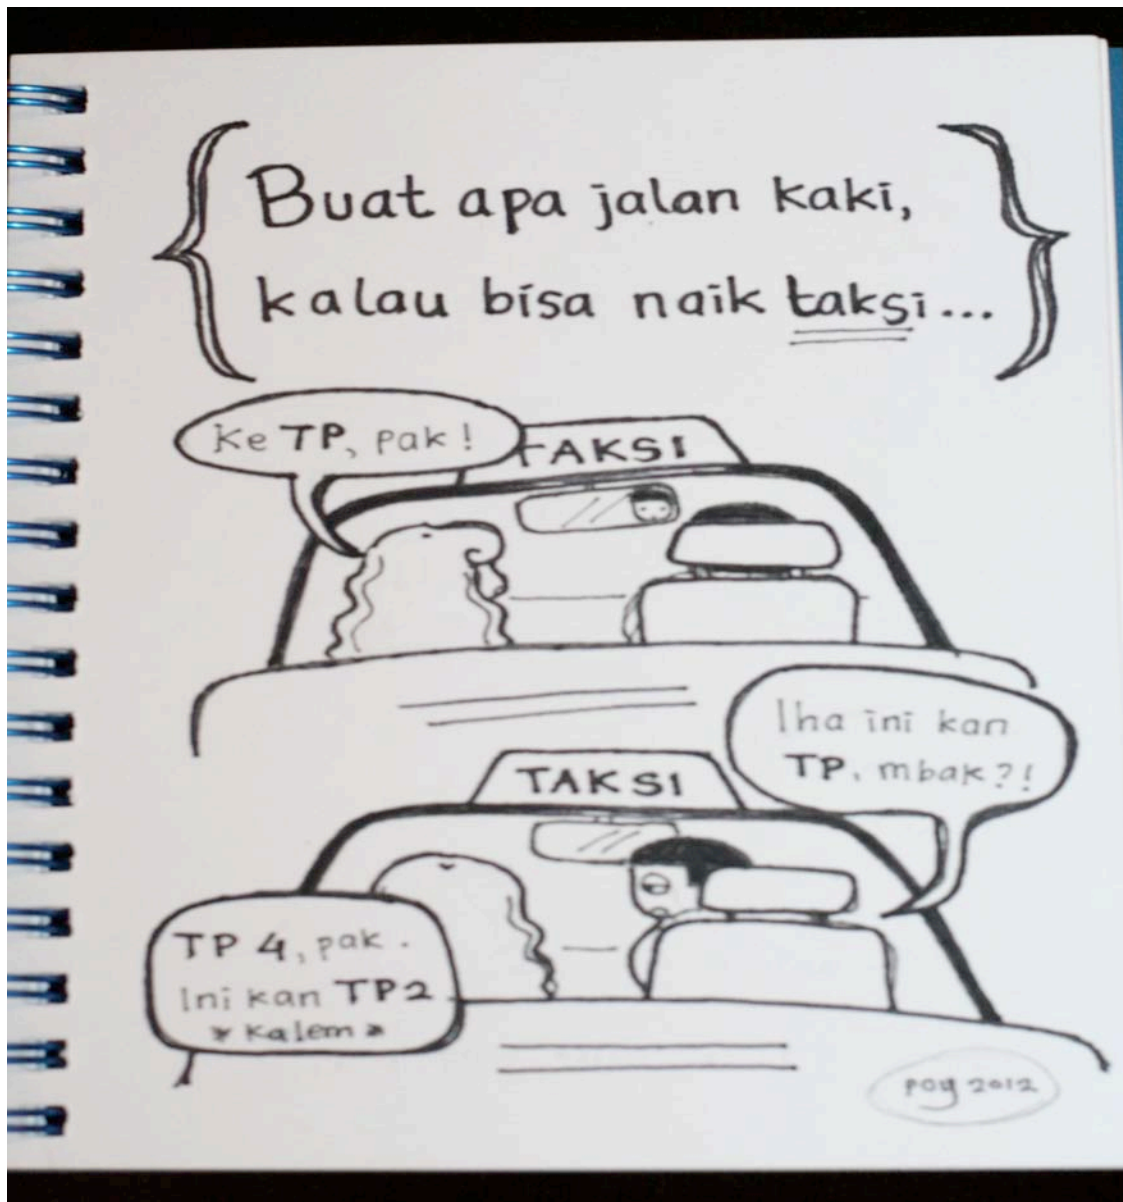 Buat apa jalan kaki,
kalau bisa naik taksi...
Ke TP, pak!
TAKSI
lha ini kan
TP, mbak?!
TAKSI
TP 4, pak.
Ini kan TP2
* kalem *
poy 2012